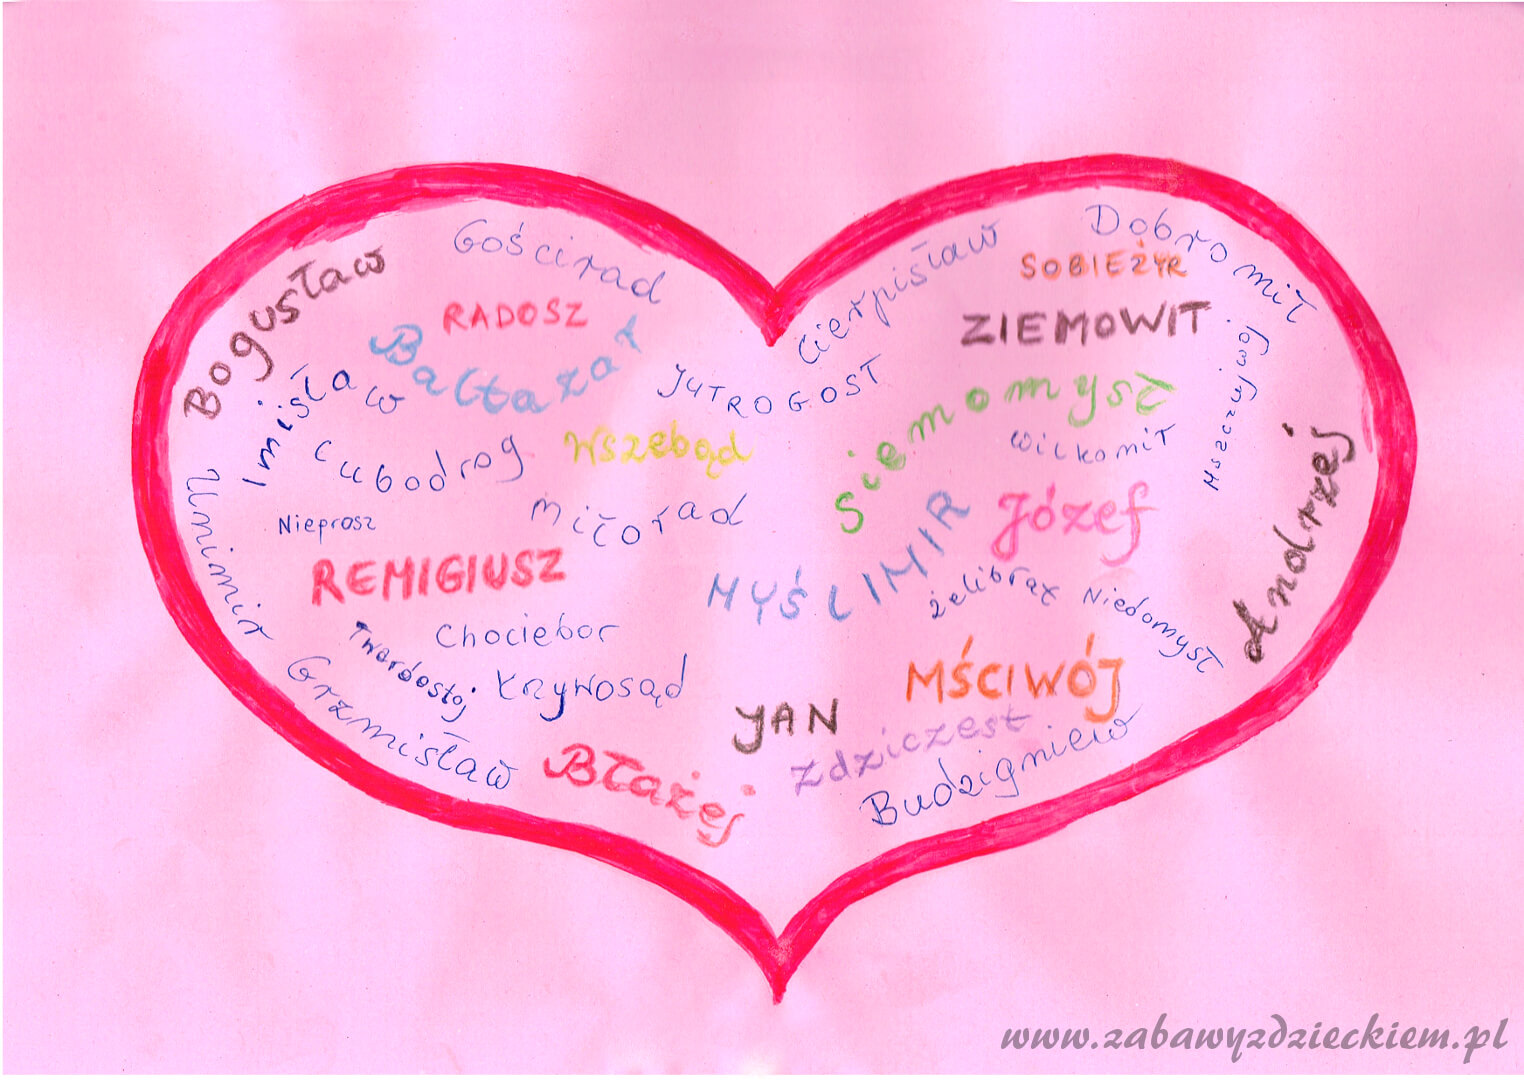 Gościrad
Bogusław
RADOSZ
Baltazar
Cierpisław
Dobromił
SOBIEŻYR
ZIEMOWIT
Imisław
JUTROGOST
Siemomysł
Mszczujwój
Lubodrog
Wszebąd
Wilkomił
Unimir
Nieprosz
Miłorad
MYŚLIMIR
Józef
Andrzej
REMIGIUSZ
Żelibrat
Niedomysł
Twardostoj
Chociebor
Krzywosąd
MŚCIWÓJ
Grzmisław
JAN
Zdziczest
Błażej
Budzigniew
www.zabawyzdzieckiem.pl